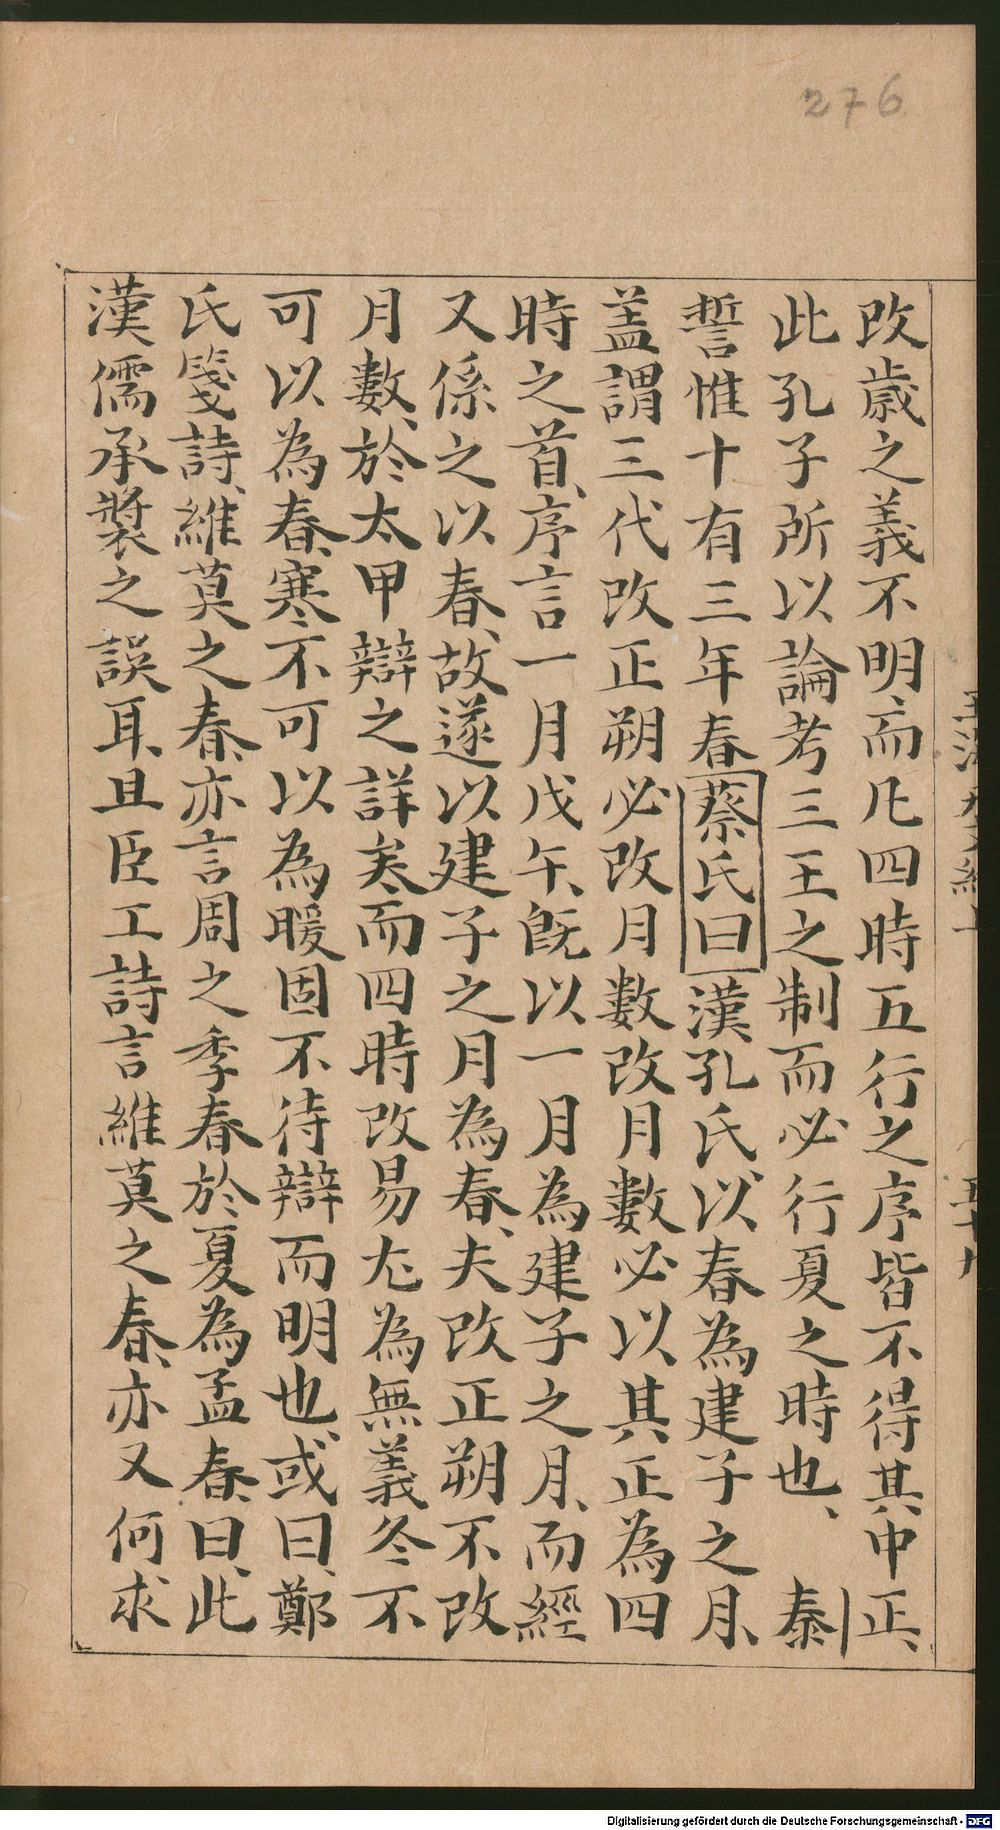 276
改歲之義不明、而凡四時五行之序皆不得其中正、
此孔子所以論考三王之制而必行夏之時也、 泰
誓惟十有三年春蔡氏曰漢孔氏以春為建子之月、
盖謂三代改正朔必改月數改月數必以其正為四
時之首、序言一月戊午、旣以一月為建子之月、而經
又係之以春、故遂以建子之月為春、夫改正朔不改
月數、於太甲辯之詳矣而四時改易尤為無義冬不
可以為春、寒不可以為暖固不待辯而明也、或曰、鄭
氏箋詩、維莫之春、亦言周之季春於夏為孟春、曰、此
漢儒承襲之誤耳、且臣工詩言維莫之春、亦又何求
Digitalisierung gefördert durch die Deutsche Forschungsgemeinschaft - DFG